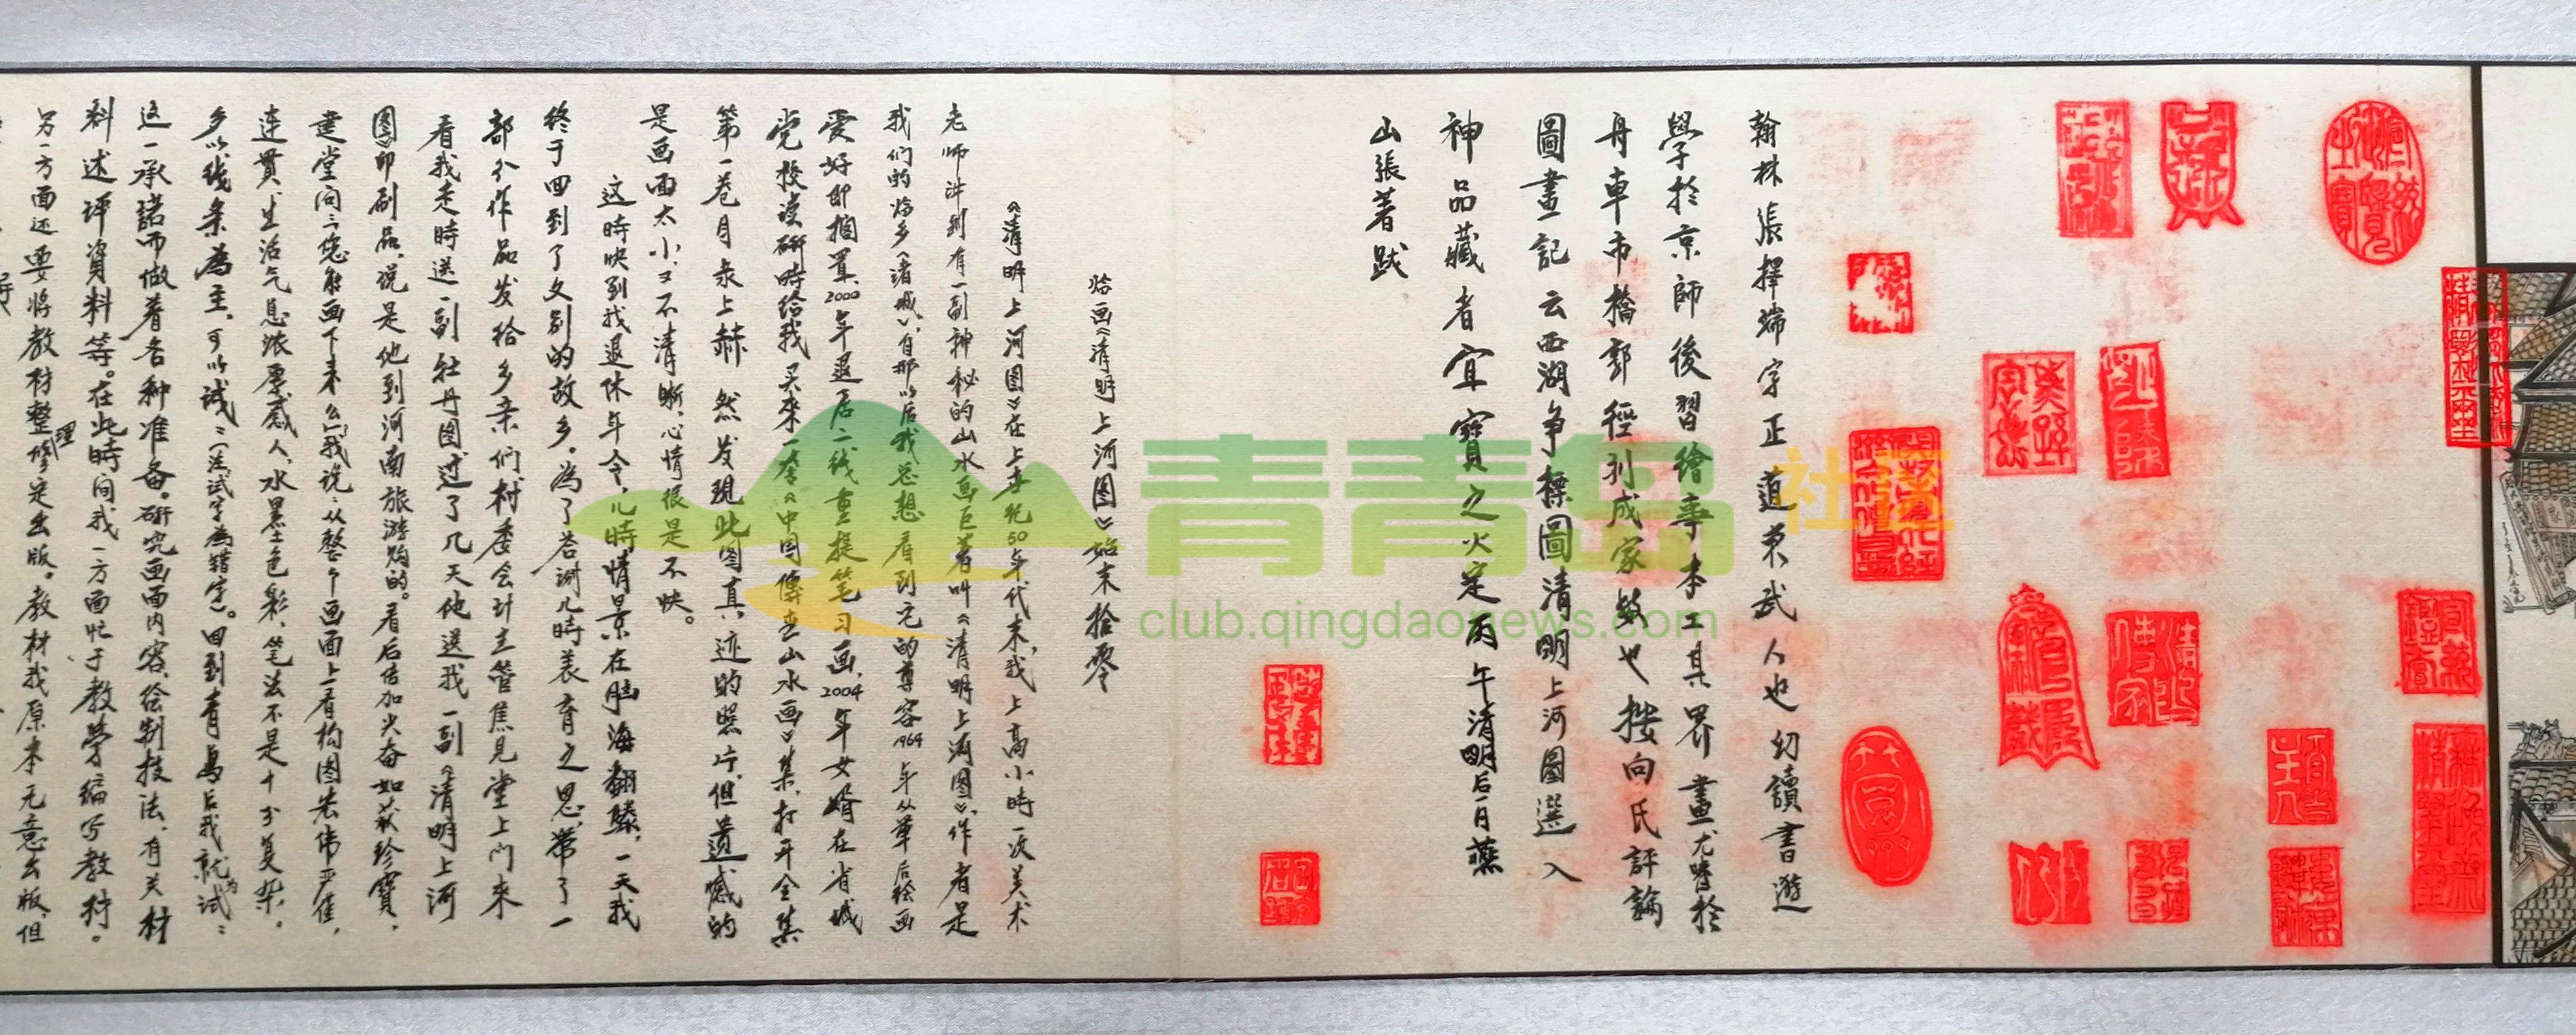 翰林張擇端字正道東武人也幻讀書遊
學於京師後習繪事本工其界畫尤嗜於
舟車市橋郭徑别成家数也按向氏評論
圖畫記云西湖争標圖清明上河圖選入
神品藏者宜寶之火定丙午清明后一日燕
山張著跋
临画《清明上河图》始末拾零
《清明上河图》在上世纪50年代末,我上高小時一次美术
老师讲到有一副神秘的山水画巨著叫《清明上河图》,作者是
我们的老乡《诸城》,自那以后我总想看到它的尊容1969年从军后绘画
爱好即搁置,2000年退居二线重提笔习画,2004年女婿在省城
党校读研時给我买來一套《中国傳世山水画》集,打开全集
第一卷目录上赫然发現此图真迹的照片,但遗憾的
是画面太小,又不清晰,心情很是不快。
这時快到我退休年令,儿時情景在脑海翻騰,一天我
终于回到了久别的故乡,為了答謝儿時養育之恩,带了一
部分作品发给乡亲们,村委会计主管焦見堂上门来
看我走時送一副牡丹图过了几天他送我一副《清明上河
图》印刷品,说是他到河南旅游购的。看后倍加兴奋如获珍寶,
建堂问:您能画下来么?我说:从整个画面上看构图宏伟严谨,
连貫,生活气息浓厚感人,水墨色彩,笔法不是十分复杂,
多以线条為主,可以試:(注:試字為錯字)。回到青島后我就為試:
这一承諾而做着各种准备。研究画面内容,绘制技法,有关材
料述评資料等。在此時间我一方面忙于教學编写教材。
另一方面还要将教材整理修定出版。教材我原本无意出版,但
青青岛
社区
club.qingdaonews.com